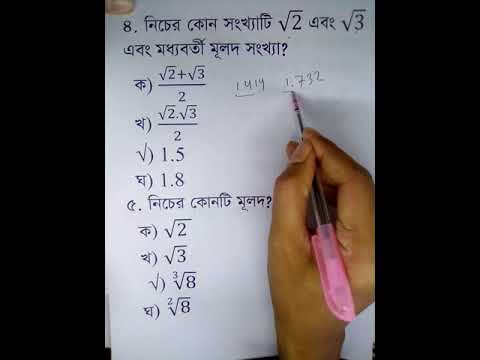 ৪. নিচের কোন সংখ্যাটি √2 এবং √3
এবং মধ্যবর্তী মূলদ সংখ্যা?
ক) (√2+√3)/2
1.414 1.732
খ) (√2.√3)/2
√) 1.5
ঘ) 1.8
৫. নিচের কোনটি মূলদ?
ক) √2
খ) √3
√) ∛8
ঘ) ²√8